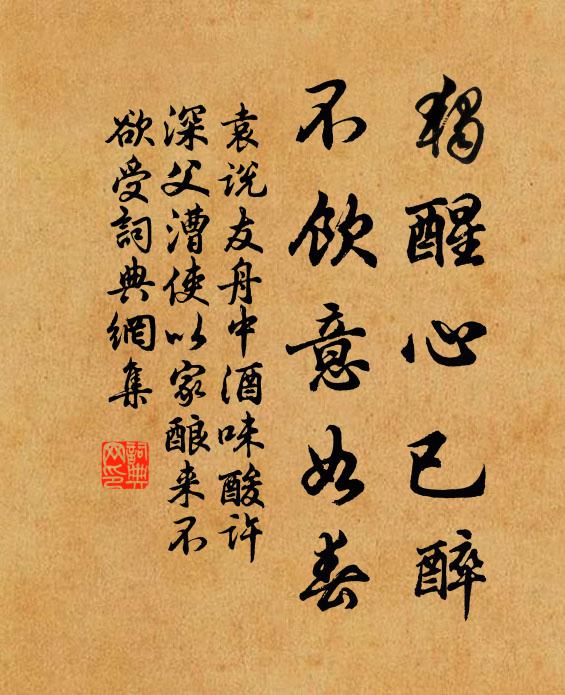 獨醒心已醉
不飲意如春
袁说友舟中酒味酸许
深父漕使以家酿来不
欲受詞典網集
詞典
网印